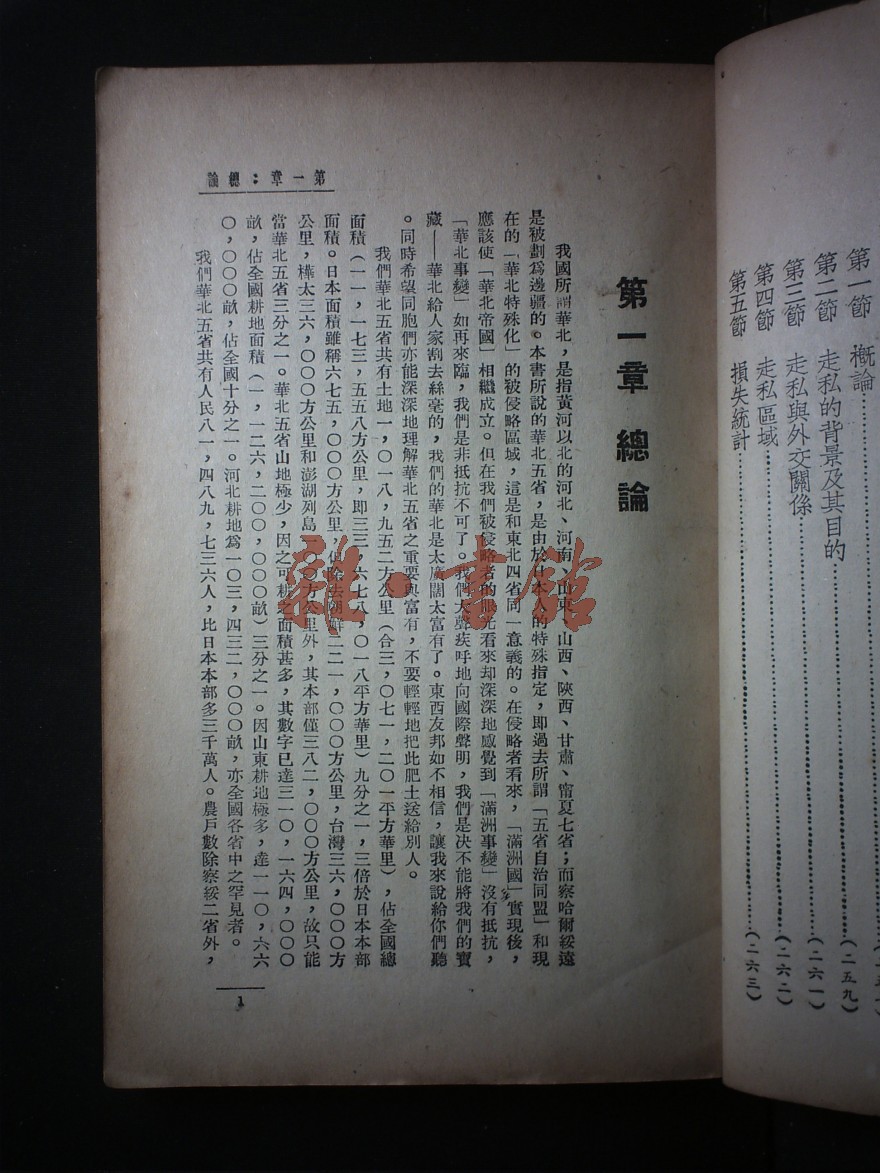 第一節 概論
第二節 走私的背景及其目的……(二五九)
第三節 走私與外交關係……(二六一)
第四節 走私區域……(二六二)
第五節 損失統計……(二六三)
第一章:總論
第一章 總論
我國所謂華北,是指黃河以北的河北、河南、山東、山西、陝西、甘肅、甯夏七省;而察哈爾綏遠
是被劃爲邊疆的。本書所說的華北五省,是由於日本人的特殊指定,即過去所謂「五省自治同盟」和現
在的「華北特殊化」的被侵略區域,這是和東北四省同一意義的。在侵略者看來,「滿洲國」實現後,
應該使「華北帝國」相繼成立。但在我們被侵略者的眼光看來却深深地感覺到「滿洲事變」沒有抵抗,
「華北事變」如再來臨,我們是非抵抗不可了。我們大聲疾呼地向國際聲明,我們是決不能將我們的寶
藏——華北給人家割去絲毫的,我們的華北是太廣闊太富有了。東西友邦如不相信,讓我來說給你們聽
。同時希望同胞們亦能深深地理解華北五省之重要與富有,不要輕輕地把此肥土送給別人。
我們華北五省共有土地一,〇一八,九五二方公里(合三,〇七一,二〇一平方華里),佔全國總
面積(一一,一七三,五五八方公里,即三三,六七八,〇一八平方華里)九分之一,三倍於日本本部
面積。日本面積雖稱六七五,〇〇〇方公里,但除去朝鮮二二一,〇〇〇方公里,台灣三六,〇〇〇方
公里,樺太三六,〇〇〇方公里和澎湖列島一〇〇方公里外,其本部僅三八二,〇〇〇方公里,故只能
當華北五省三分之一。華北五省山地極少,因之可耕之面積甚多,其數字已達三一〇,一六四,〇〇〇
畝,佔全國耕地面積(一,一二六,二〇〇,〇〇〇畝)三分之一。因山東耕地極多,達一一〇,六六
〇,〇〇〇畝,佔全國十分之一。河北耕地爲一〇三,四三二,〇〇〇畝,亦全國各省中之罕見者。
我們華北五省共有人民八一,四八九,七三六人,比日本本部多三千萬人。農戶數除察綏二省外,
1
雜·書館